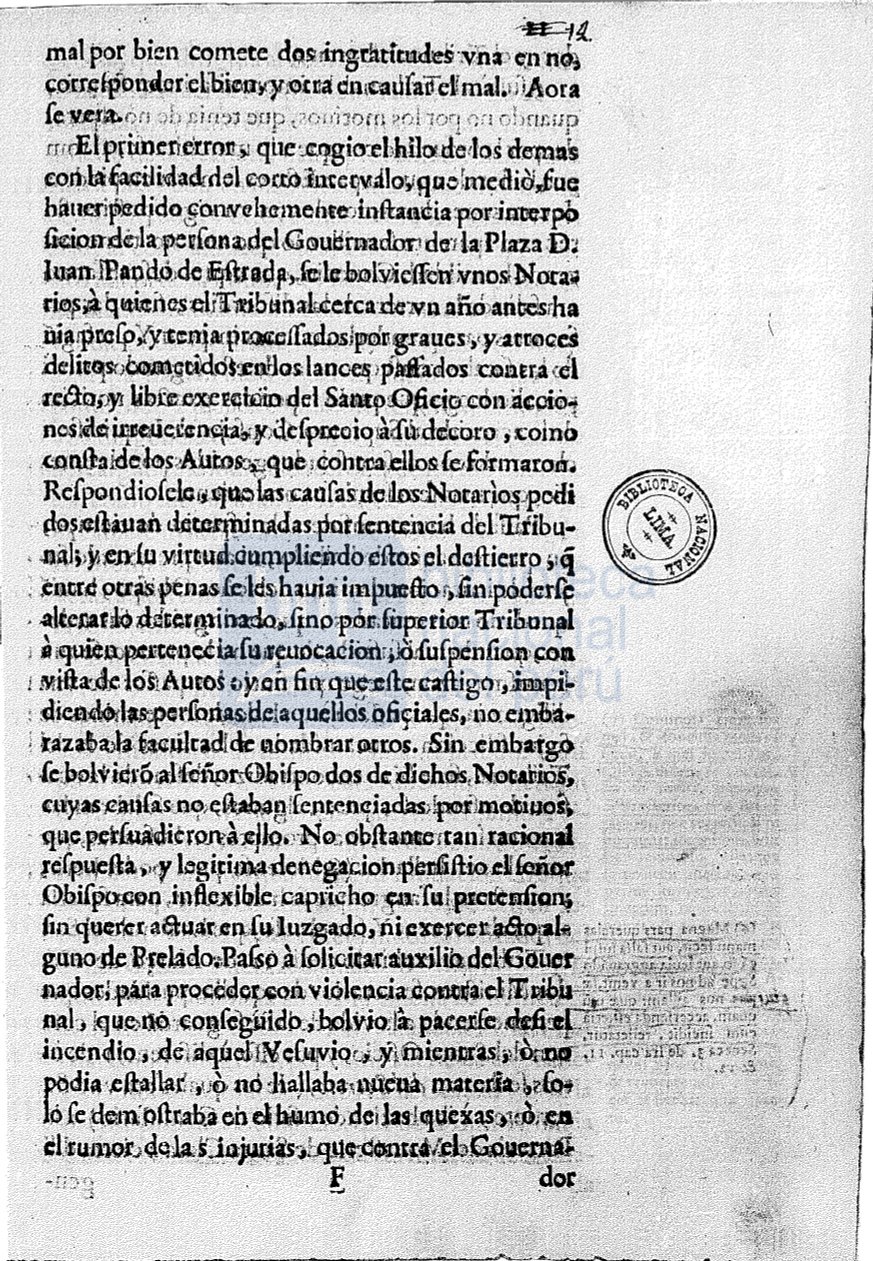 12
mal por bien comete dos ingratitudes vna en no,
corresponder el bien, y otra en causar el mal. Aora
se vera.
El primer error, que cogio el hilo de los demas
con la facilidad del corto intervalo, que mediò, fue
hauer pedido con vehemente instancia por interpo
sicion de la persona del Gouernador de la Plaza D.
Iuan Pando de Estrada, se le bolviessen vnos Nota-
rios, à quienes el Tribunal cerca de vn año antes ha
uia preso, y tenia processados por graues, y atroces
delitos cometidos en los lances passados contra el
recto, y libre exercicio del Santo Oficio con accio-
nes de irreuerencia, y desprecio à su decoro, como
consta de los Autos, que contra ellos se formaron.
Respondiosele, que las causas de los Notarios pedi
dos estauan determinadas por sentencia del Tribu-
nal, y en su virtud cumpliendo estos el destierro, q̃
entre otras penas se les havia impuesto, sin poderse
alterar lo determinado, sino por superior Tribunal
à quien pertenecia su reuocacion, ò suspension con
vista de los Autos: y en fin que este castigo, impi-
diendo las personas de aquellos oficiales, no emba-
razaba la facultad de nombrar otros. Sin embargo
se bolvierõ al señor Obispo dos de dichos Notarios,
cuyas causas no estaban sentenciadas por motiuos,
que persuadieron à ello. No obstante tan racional
respuesta, y legitima denegacion persistio el señor
Obispo con inflexible capricho en su pretension,
sin querer actuar en su Iuzgado, ni exercer acto al-
guno de Prelado. Passo à solicitar auxilio del Gouer
nador, para proceder con violencia contra el Tribu
nal, que no conseguido, bolvio à pacerse desi el
incendio, de aquel Vesuvio, y mientras, ò no
podia estallar, ò no hallaba nueua materia, so-
lo se demostraba en el humo de las quexas, ò en
el rumor de las injurias, que contra el Gouerna-
F dor
BIBLIOTECA NACIONAL
LIMA
biblioteca
nacional
del perú